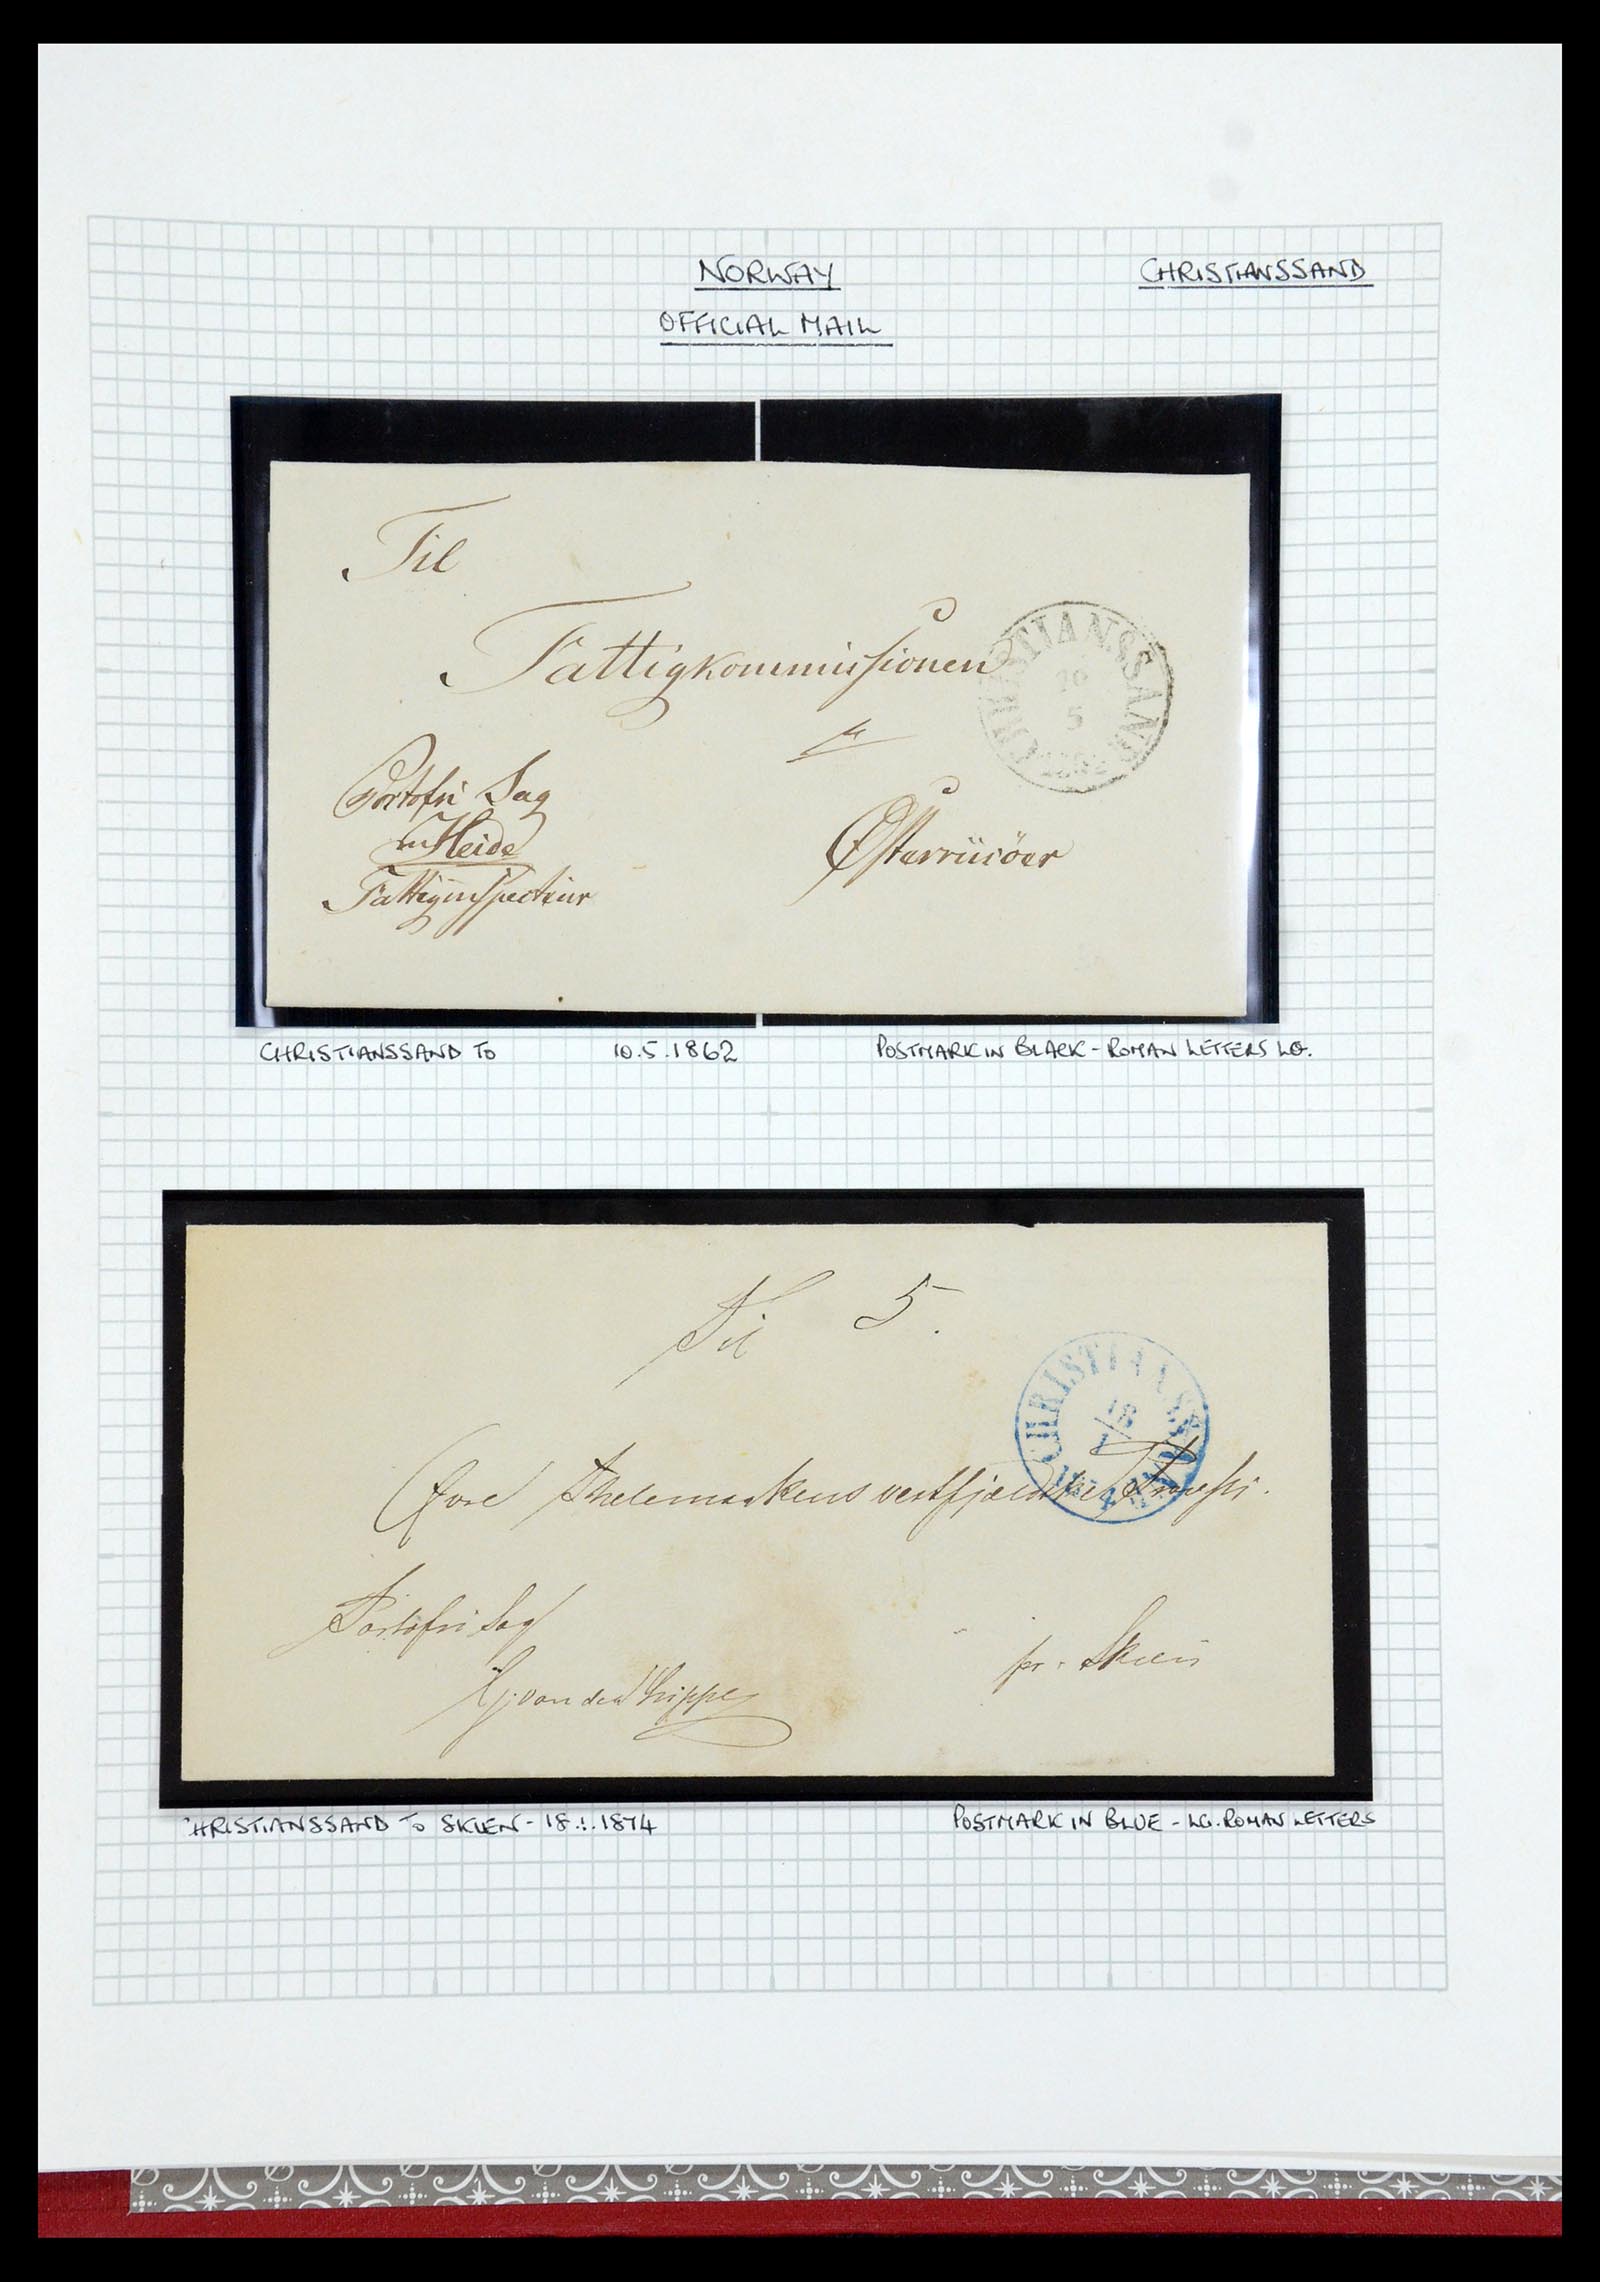 NORWAY
CHRISTIANSSAND
OFFICIAL MAIL
Til
Fattigkommissionen
CHRISTIANSSAND
10
5
1862
Portofri Sag
Heide
Fattiginspecteur
Østerriisöer
CHRISTIANSSAND TO 10.5.1862 POSTMARK IN BLACK - ROMAN LETTERS LG.
Til 5.
CHRISTIANSSAND
18
1
1874
Øvre Thelemarkens vestfjeldske Provsti.
Portofri Sag
pr. Skien
J. von der Lippe
CHRISTIANSSAND TO SKIEN - 18.1.1874 POSTMARK IN BLUE - LG. ROMAN LETTERS